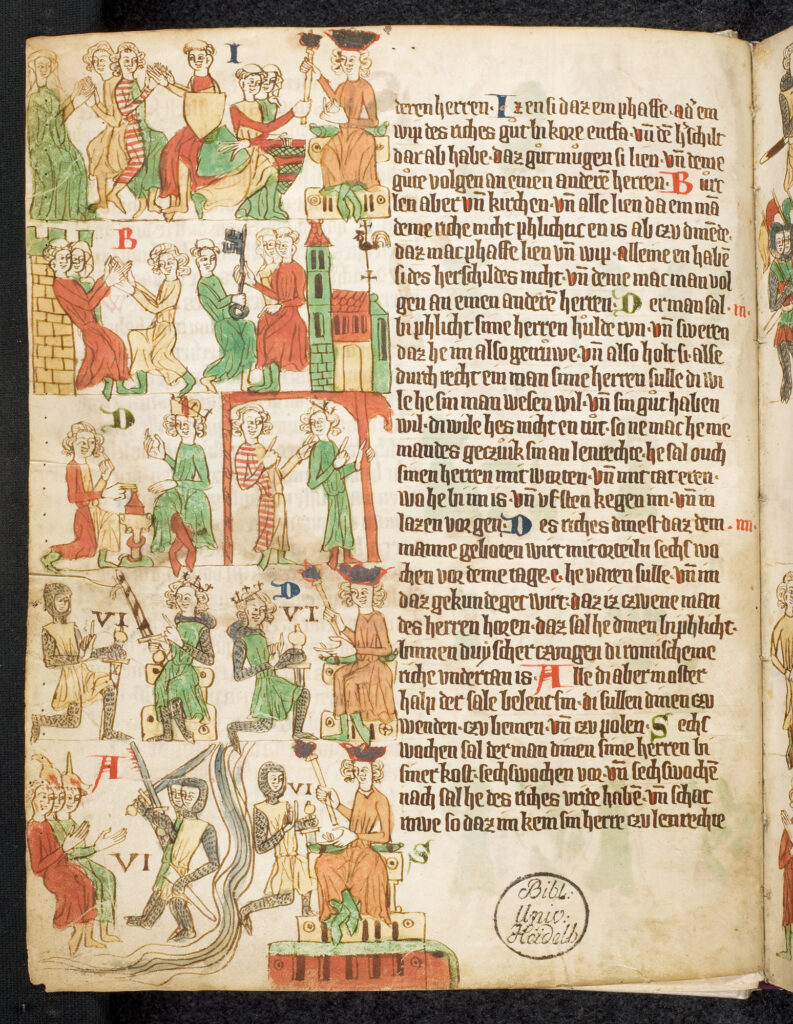 deren herren· Iz en si daz ein phaffe· ad͛ ein
wip des riches gut bi kore entfa· vn̄ dē h͛schilt
dar ab habe· daz gut mugen si lien· vn̄ deme
gute volgen an einen anderē herren· Burc
len aber vn̄ kirchen· vn̄ alle lien da ein mā
deme riche nicht phlichtic en is ab czu dinēde·
daz mac phaffe lien vn̄ wip· alleine en habē
si des herschildes nicht· vn̄ deme mac man vol
gen an einen anderē herren· Der man sal
bi phlicht sime herren hulde tvn· vn̄ sweren
daz he im also getruwe· vn̄ also holt si· alse
durch recht ein man sime herren sulle di wi
le he sin man wesen wil· vn̄ sin gut haben
wil· di wile hes nicht en tut· so ne mac he nie
mandes geczuk sin an lenrechte· he sal ouch
sinen herren mit worten· vn̄ mit tat eren·
wo he bi im is· vn̄ vf sten kegen im· vn̄ in
lazen vor gen· Des riches dinest daz dem
manne geboten wirt mit orteiln sechs wo
chen vor deme tage· e· he varen sulle· vn̄ im
daz gekundeget wirt· daz iz czwene man
des herren horen· daz sal he dinen bi phlicht·
binnen duczscher czungen di romischeme
riche vndertan is· Alle di aber in oster
halp der sale belent sin· di sullen dinen czu
wenden· czu beinen· vn̄ czu polen· Sechs
wochen sal der man dinen sime herren bi
siner kost· sechs wochen vor· vn̄ sechs wochē
nach sal he des riches vride habē· vn̄ schat
rowe so daz im kein sin herre czu lenrechte
I
B
D
VI
D
VI
A
VI
VI
S
·iii·
·iiii·
Bibl:
Univ:
Heidelb